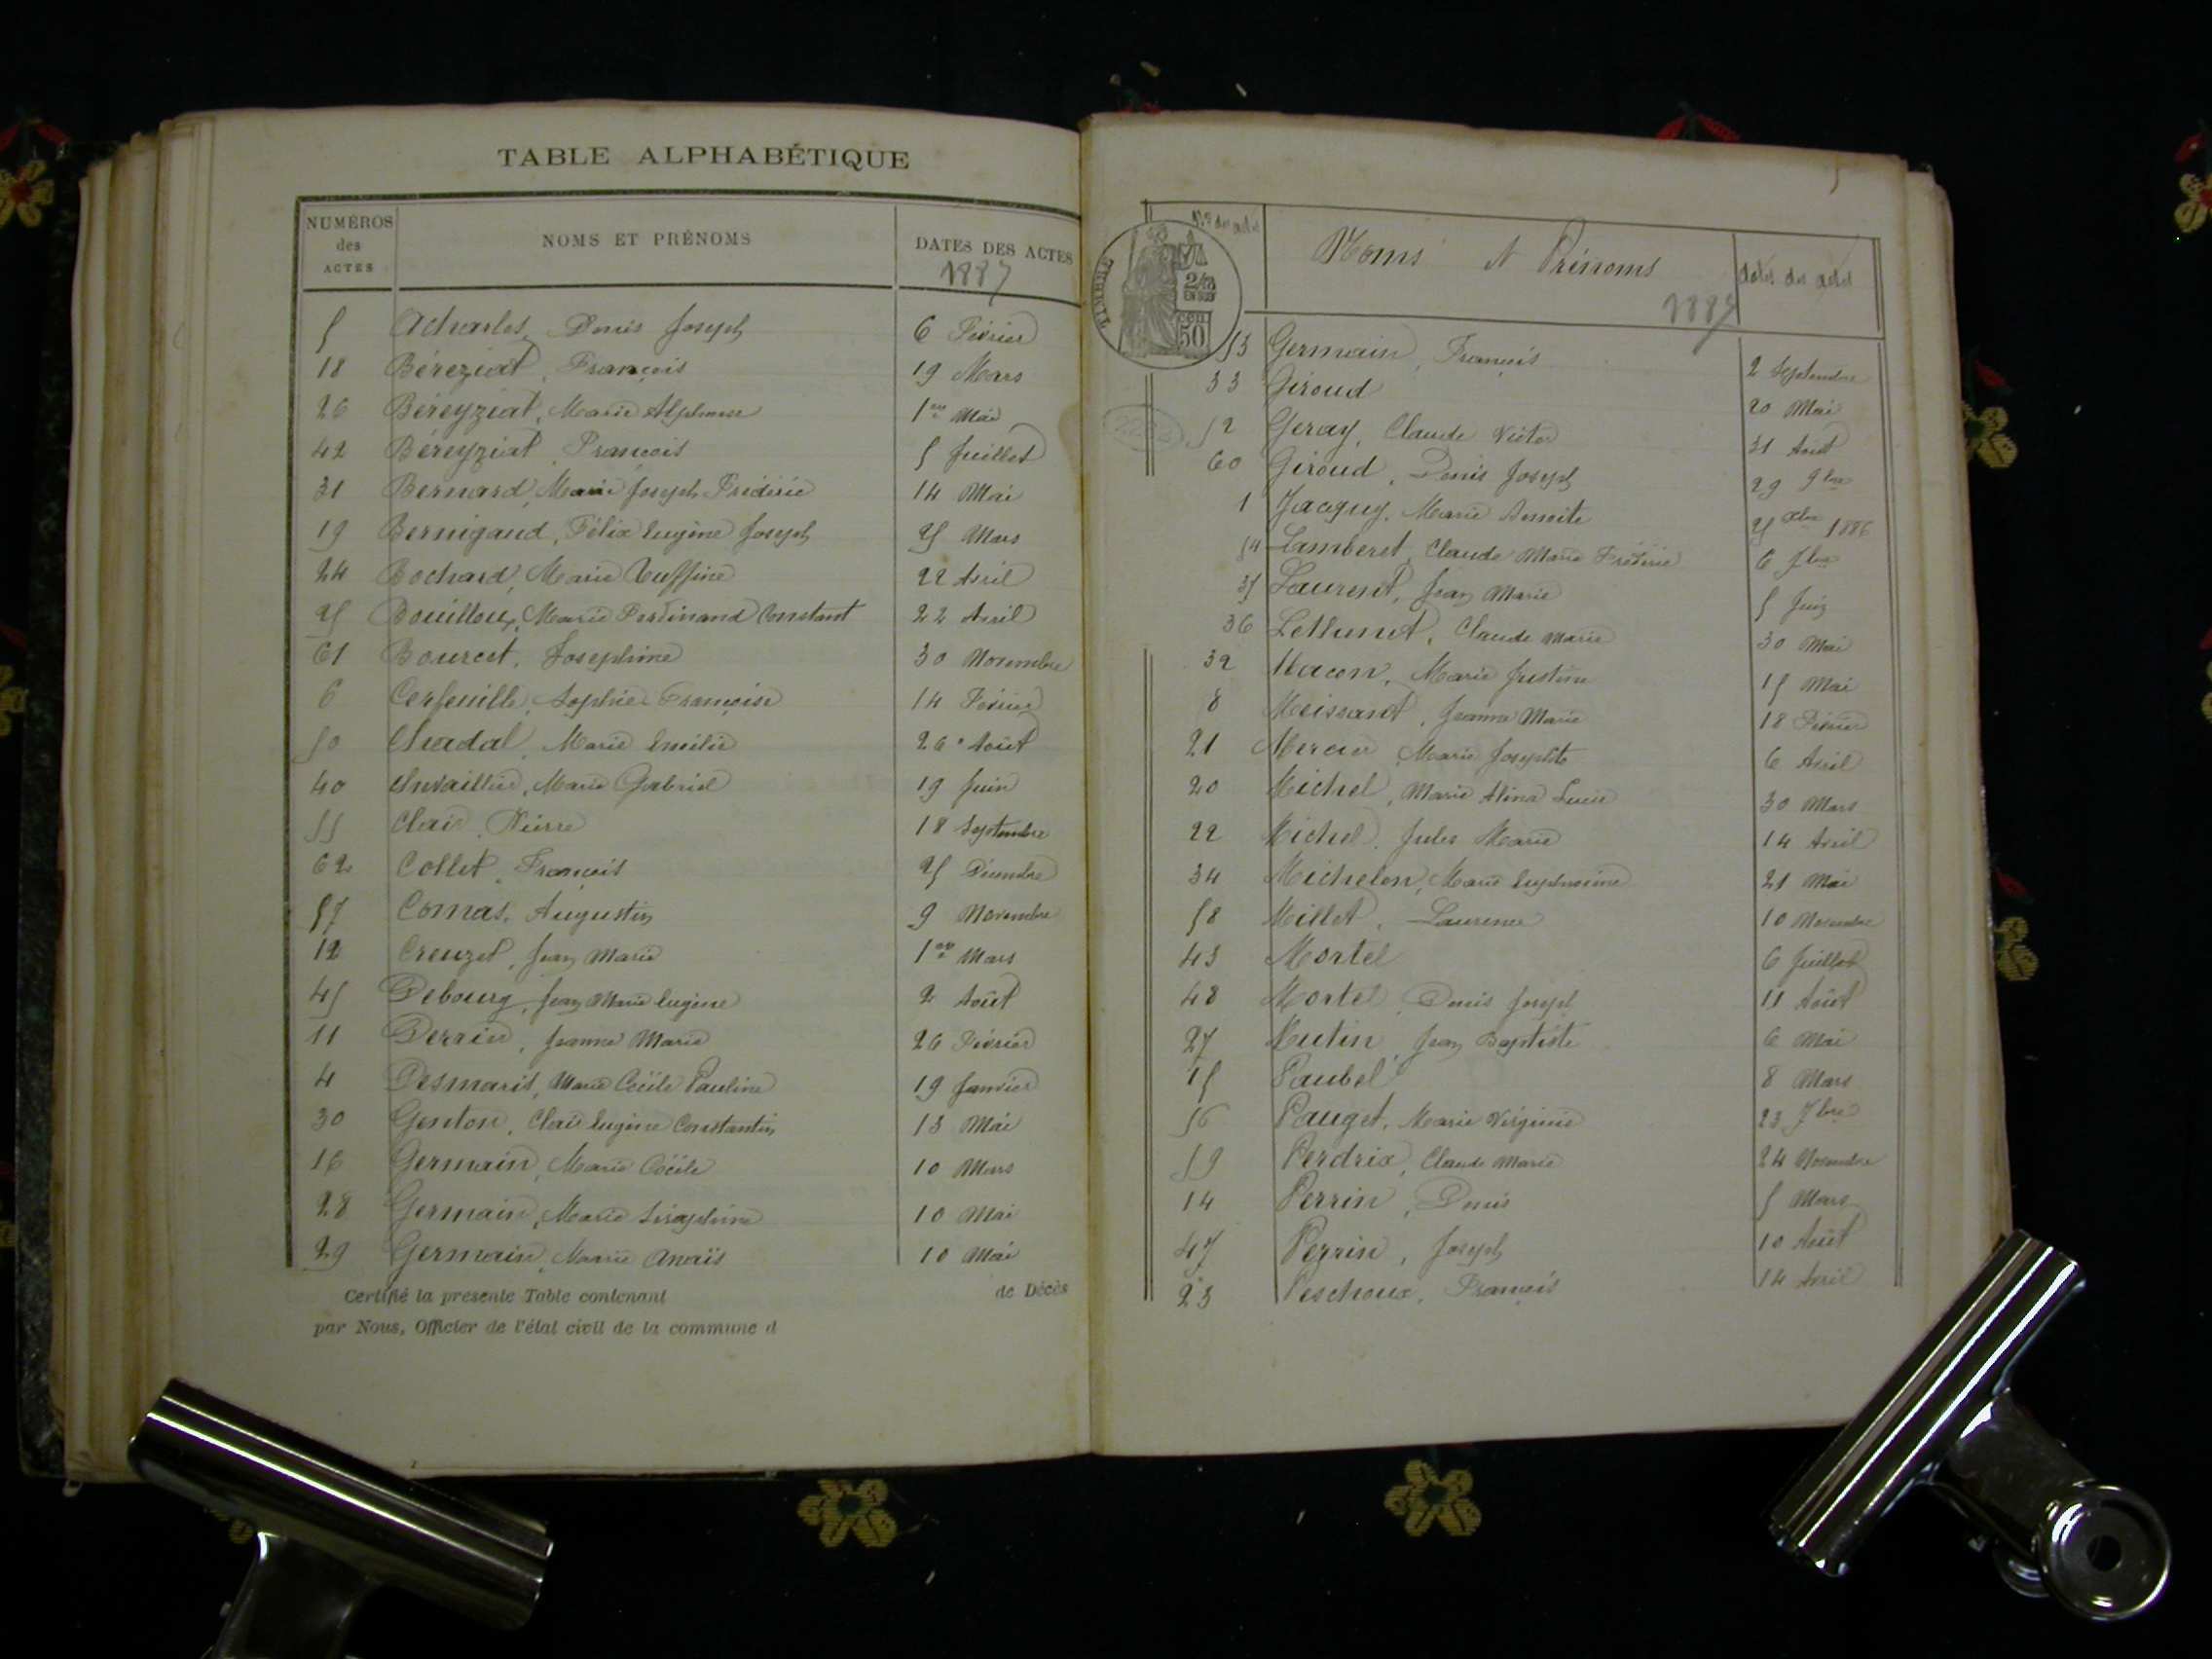 TABLE ALPHABÉTIQUE
NUMÉROS des ACTES NOMS ET PRÉNOMS DATES DES ACTES
1887
5 Acharles, Denis Joseph 6 Février
18 Béreziat, François 19 Mars
26 Béreyziat, Marie Alphonse 1er Mai
42 Béreyziat, François 5 Juillet
31 Bernard, Marie Joseph Frédéric 14 Mai
19 Bernigaud, Félix Eugène Joseph 25 Mars
24 Bochard, Marie Ruffine 22 Avril
25 Bouilloux, Marie Ferdinand Constant 22 Avril
61 Bourcet, Josephine 30 Novembre
6 Cerfeuille, Sophie Françoise 14 Février
50 Chadal, Marie Emilie 26 Août
40 Chevaillier, Marie Gabriel 19 Juin
55 Clair, Pierre 18 Septembre
62 Collet, François 25 Décembre
57 Comas, Augustin 9 Novembre
12 Creuzet, Jean Marie 1er Mars
45 Debourg, Jean Marie Eugène 2 Août
11 Perrin, Jeanne Marie 26 Février
4 Desmaris, Marie Cécile Pauline 19 Janvier
30 Genton, Clair Eugène Constantin 13 Mai
16 Germain, Marie Cécile 10 Mars
28 Germain, Marie Séraphine 10 Mai
29 Germain, Marie Anaïs 10 Mai
Certifié la présente Table contenant de Décès
par Nous, Officier de l'état civil de la commune d
5
Nos des actes Noms et Prénoms dates des actes
1887
TIMBRE
2/10
EN SUS
50
53 Germain, François 2 Septembre
33 Giroud 20 Mai
52 Geray, Claude Victor 31 Août
60 Giroud, Denis Joseph 29 9bre
1 Jacquy, Marie Benoite 25 Xbre 1886
54 Lamberet, Claude Marie Frédéric 6 7bre
35 Laurent, Jean Marie 5 Juin
36 Claude Marie 30 Mai
32 Macon, Marie Justine 15 Mai
8 Meissant, Jeanne Marie 18 Février
21 Mercier Marie Josephte 6 Avril
20 Michel, Marie Alina Lucie 30 Mars
22 Michel, Jules Marie 14 Avril
34 Michelon, Marie Euphrosine 21 Mai
58 Millet, Laurence 10 Novembre
43 Mortel 6 Juillet
48 Mortel, Denis Joseph 11 Août
27 Mutin Jean Baptiste 6 Mai
15 Paubel 8 Mars
56 Pauget, Marie Virginie 23 7bre
59 Perdrix, Claude Marie 24 Novembre
14 Perrin, Denis 5 Mars
47 Perrin, Joseph 10 Août
23 Peschoux, François 14 Avril